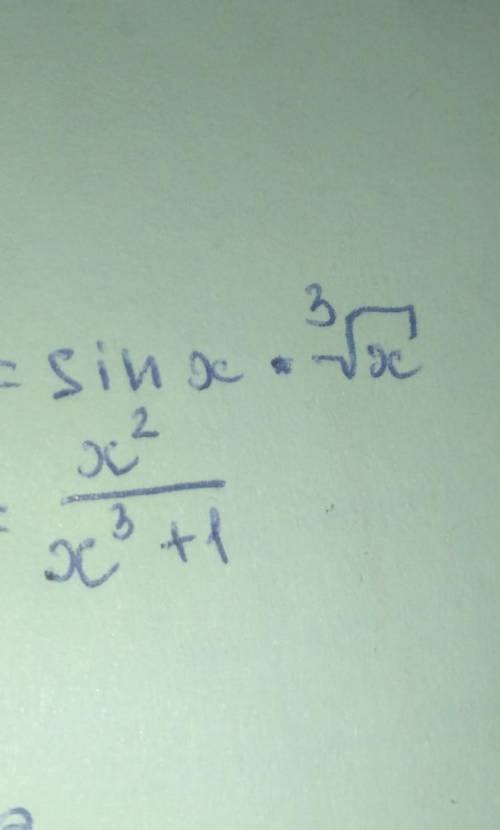 = sin x · ∛x
= x² / (x³ + 1)